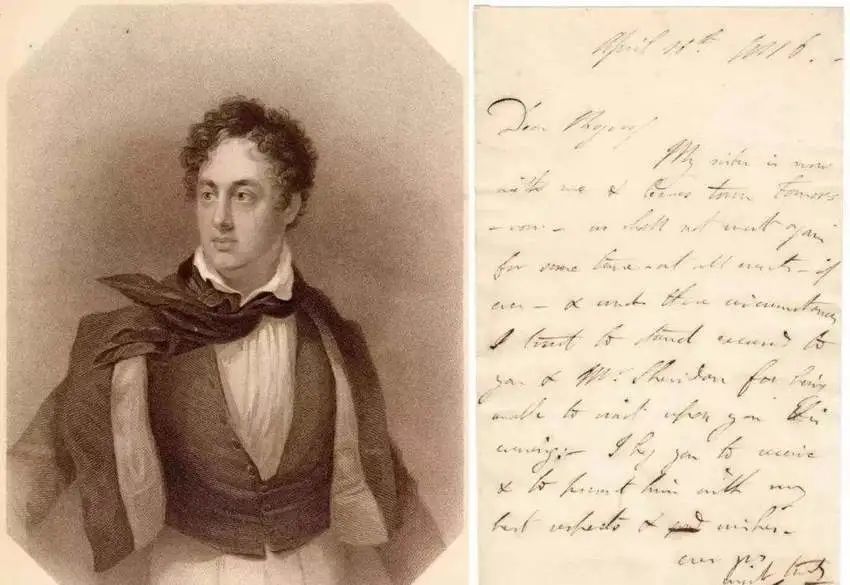 April 16th 1816. -
Dear Rogers
My sister is now
with me & leaves town tomor-
-row - we shall not meet again
for some time - at all events - if
ever - & under these circumstances
I trust to stand excused to
you & Mr. Sheridan for being
unable to wait upon you this
evening. - I beg you to receive
& to present him with my
best respects & wishes -
ever yrs
most truly